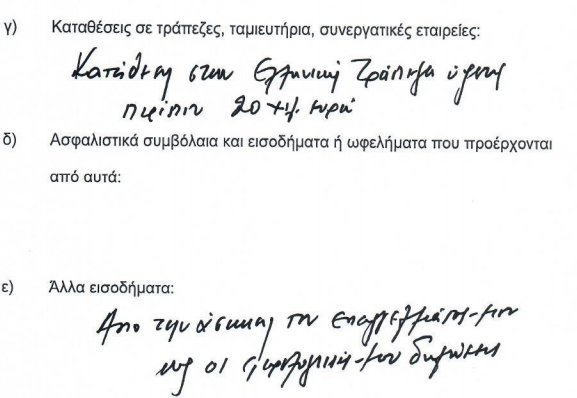 γ) Καταθέσεις σε τράπεζες, ταμιευτήρια, συνεργατικές εταιρείες:
Κατάθεση στην Ελληνική Τράπεζα ύψους
περίπου 20 χιλ. ευρώ
δ) Ασφαλιστικά συμβόλαια και εισοδήματα ή ωφελήματα που προέρχονται
από αυτά:
ε) Άλλα εισοδήματα:
Από την άσκηση του επαγγέλματος μου
ως οι φορολογικές μου δηλώσεις